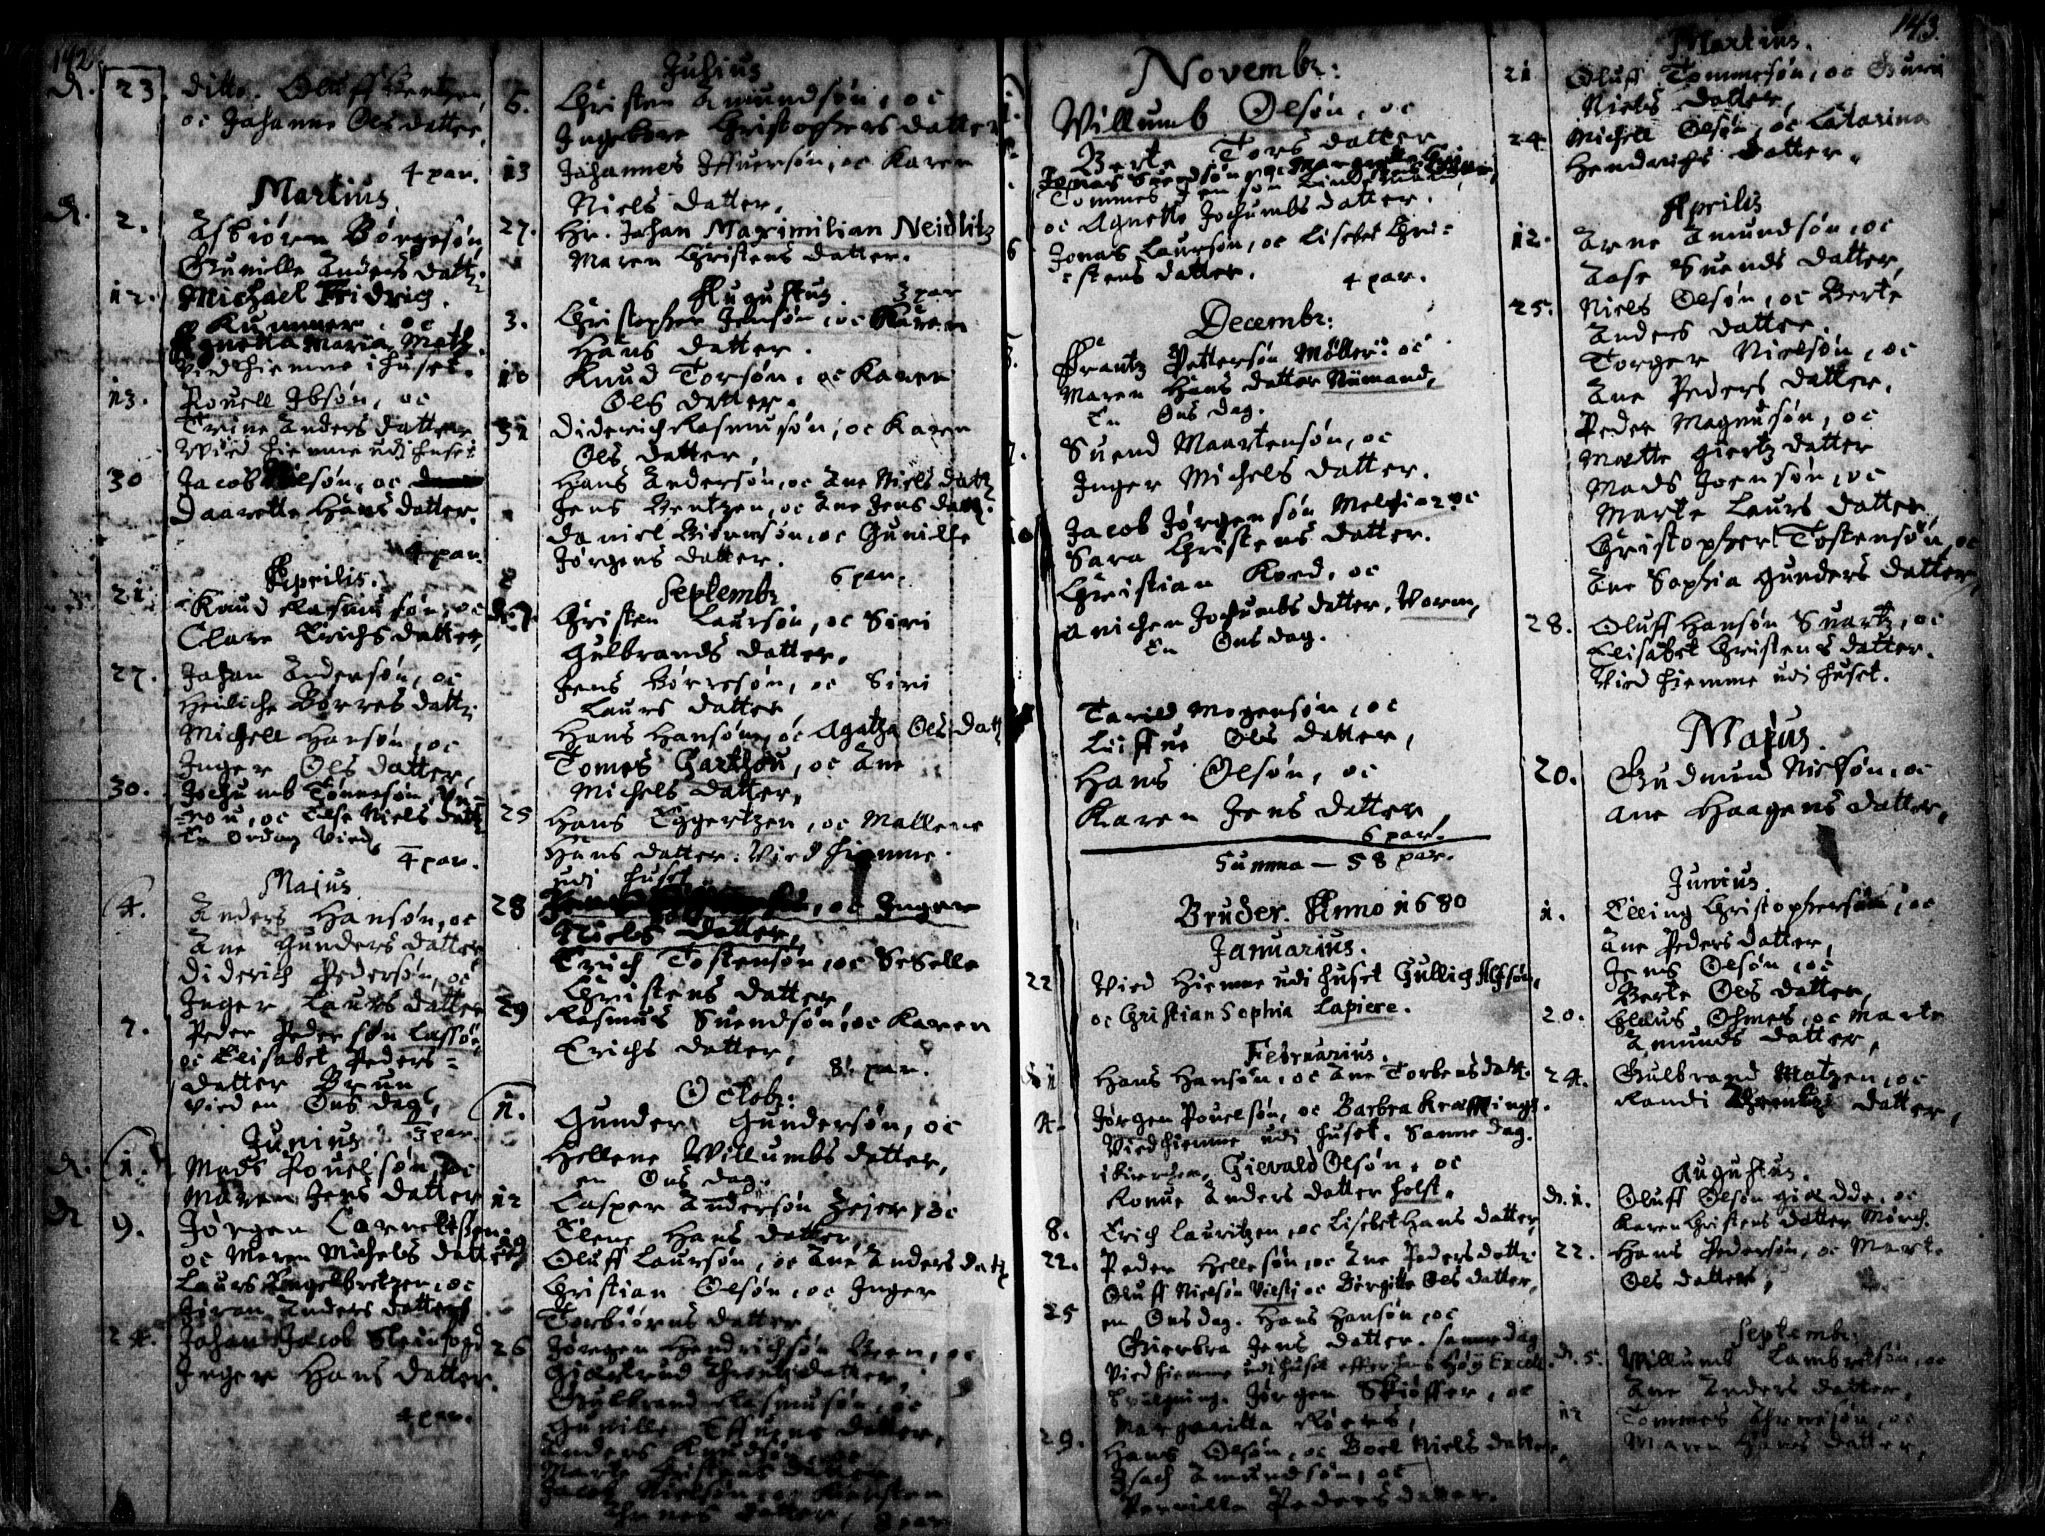 142.
D. 23. ditto. Oluff Bentzen,
oc Johanne Ols datter,
4 par.
Martius.
D. 2. Asbiørn Børgesøn
Gunille Anders datt:
12. Michael Fridrich
Kummer, oc
Agnetta Maria Matz
Vied hiemme i huset.
13. Pouell Ibsøn, oc
Trine Anders datter
Vied hiemme udi huset
30 Jacob Olsøn, oc
Daarette Hans datter.
4 par.
Aprilis.
21 Knud Rasmusøn, oc
Clare Erichs datter,
27. Johan Andersøn, oc
Henliche Børres datt:
Michell Hansøn, oc
Inger Ols datter,
30. Jochumb Tønnesøn
oc Else Niels datt
En Ons dag Vied,
4 par.
Majus
4. Anders Hansøn, oc
Ane Gunders datter
Diderich Pedersøn, oc
Inger Laurs datter
7. Peder Pedersøn Lassøn
oc Elisabet Peders-
datter Brun
vied en Ons dag,
3 par.
Junius
D. 1. Mads Pouelsøn, oc
Maren Jens datter
D 9. Jørgen Cornelißen
oc Maren Michels datter
Laurs Engelbretzen, oc
Anders datter
24. Johan Jacob
Inger Hans datter.
4 par.
Julius
6. Christen Amundsøn, oc
Ingebore Christophers datter
13 Johannes Iffuersøn, oc Karen
Niels datter,
27. Hr. Johan Maximilian Neidlitz
Maren Christens datter.
3 par
Augustus.
3. Christopher Jensøn, oc Karen
Hans datter.
10 Knud Torsøn, oc Karen
Ols datter.
31 Diderich Rasmusøn, oc Karen
Ols datter,
Hans Andersøn, oc Ane Niels datt
Jens Bentzen, oc Ane Jens datt.
Daniel Biørnsøn, oc Gunille
Jørgens datter.
6 par.
Septembr
D. 7. Christen Laursøn, oc Siri
Gulbrands datter,
Jens Børresøn, oc Siri
Laurs datter
Hans Hansøn, oc Agatha Ols datt
Tomes Garthou, oc Ane
Michels datter,
25 Hans Eggertzen, oc Mallene
Hans datter. Vied hiemme
udi huset
28 oc Inger
Niels datter,
Truch Tostensøn, oc Seselle
Christens datter,
29 Rasmus Suendsøn, oc Karen
Erichs datter,
8 par.
Octobr:
1. Gunder Gundersøn, oc
Hellene Willumbs datter,
en Ons dag.
12 Casper Andersøn Zejer, oc
Elene Hans datter
Oluff Laursøn, oc Ane Anders datt
Christian Olsøn, oc Inger
Torbiørns datter
26 Jørgen Hendrichsøn oc
Giertrud datter,
Gulbrand Rasmusøn, oc
Gunille datter,
Anders Knudsøn, oc
Marte Christens datter
Jacob Nielsøn, oc Kirsten
datter, 8 par
Novembr:
Willumb Olsøn, oc
Berte Tors datter
Jonas Suendsøn, oc
Tommes Jensøn
oc Agnette Jochumbs datter.
6 Jonas Laursøn, oc Lisebet Chri-
-stens datter.
4 par.
Decembr:
Frantz Pettersøn Møller: oc
Maren Hans datter Niimand,
En Ons dag.
Suend Maartensøn, oc
Inger Michels datter.
Jacob Jørgensøn Melchior: oc
Sara Christens datter.
Christian Kord, oc
Anichen Jochumbs datter, Vorm,
En Ons dag.
Tarild Mogensøn, oc
Liffue Ols datter,
Hans Olsøn, oc
Karen Jens datter,
6 par.
Summa — 58 par.
Bruder. Anno 1680
Januarius.
22 Vied Hiemme udi huset Gullich Alfsøn,
oc Christian Sophia Lapiere.
Februarius.
D 1 Hans Hansøn, oc Ane Torbens datt.
4. Jørgen Pouelsøn, oc Barbra
Vied hiemme udi huset. Samme dag.
i Kierchen, Gievald Olsøn, oc
Konne Anders datter Holst.
8. Erich Lauritzen, oc Lisebet Hans datter
22. Peder Hellesøn, oc Ane Peders datt:
Oluff Nielsøn oc Birgitte Ols datter,
25 en Ons dag. Hans Hansøn, oc
Jens datter. samme dag
Vied hiemme udi huset effter hans Høy Excell.
Jørgen Skiøffer, oc
Margaritta
29. Hans Olsøn, oc Boel Niels datter,
Isach Amundsøn, oc
Pernille Peders datter.
143.
Martius.
21 Oluff Tommesøn, oc Guri
Niels datter,
24 Michell Olsøn, oc Catarina
Hendrichs datter.
Aprilis
12. Arne Amundsøn, oc
Aase Suends datter,
25. Niels Olsøn, oc Berte
Anders datter.
Torger Nielsøn, oc
Ane Peders datter.
Peder Magnusøn, oc
Mætte Giertz datter
Mads Joensøn, oc
Marte Laurs datter,
Christopher Tostensøn, oc
Ane Sophia Gunders datter,
28. Oluff Hansøn Suartz, oc
Elisabet Christens datter.
Vied hiemme udi huset.
Majus.
20. Gudmund Nielsøn, oc
Ane Haagens datter,
Junius.
1. Elling Christophersøn, oc
Ane Peders datter,
Jens Olsøn, oc
Berte Ols datter,
20. Claus Ohmes, oc Marte
Amunds datter,
24. Gulbrand Matzen, oc
Randi datter,
Augustus.
D. 1. Oluff Olsøn oc
Karen Christens datter Mørch.
22. Hans Pedersøn, oc Marte
Ols datter,
Septembr:
D. 5. Willumb Lambretsøn, oc
Ane Anders datter,
12 Tommes oc
Maren Hans datter,